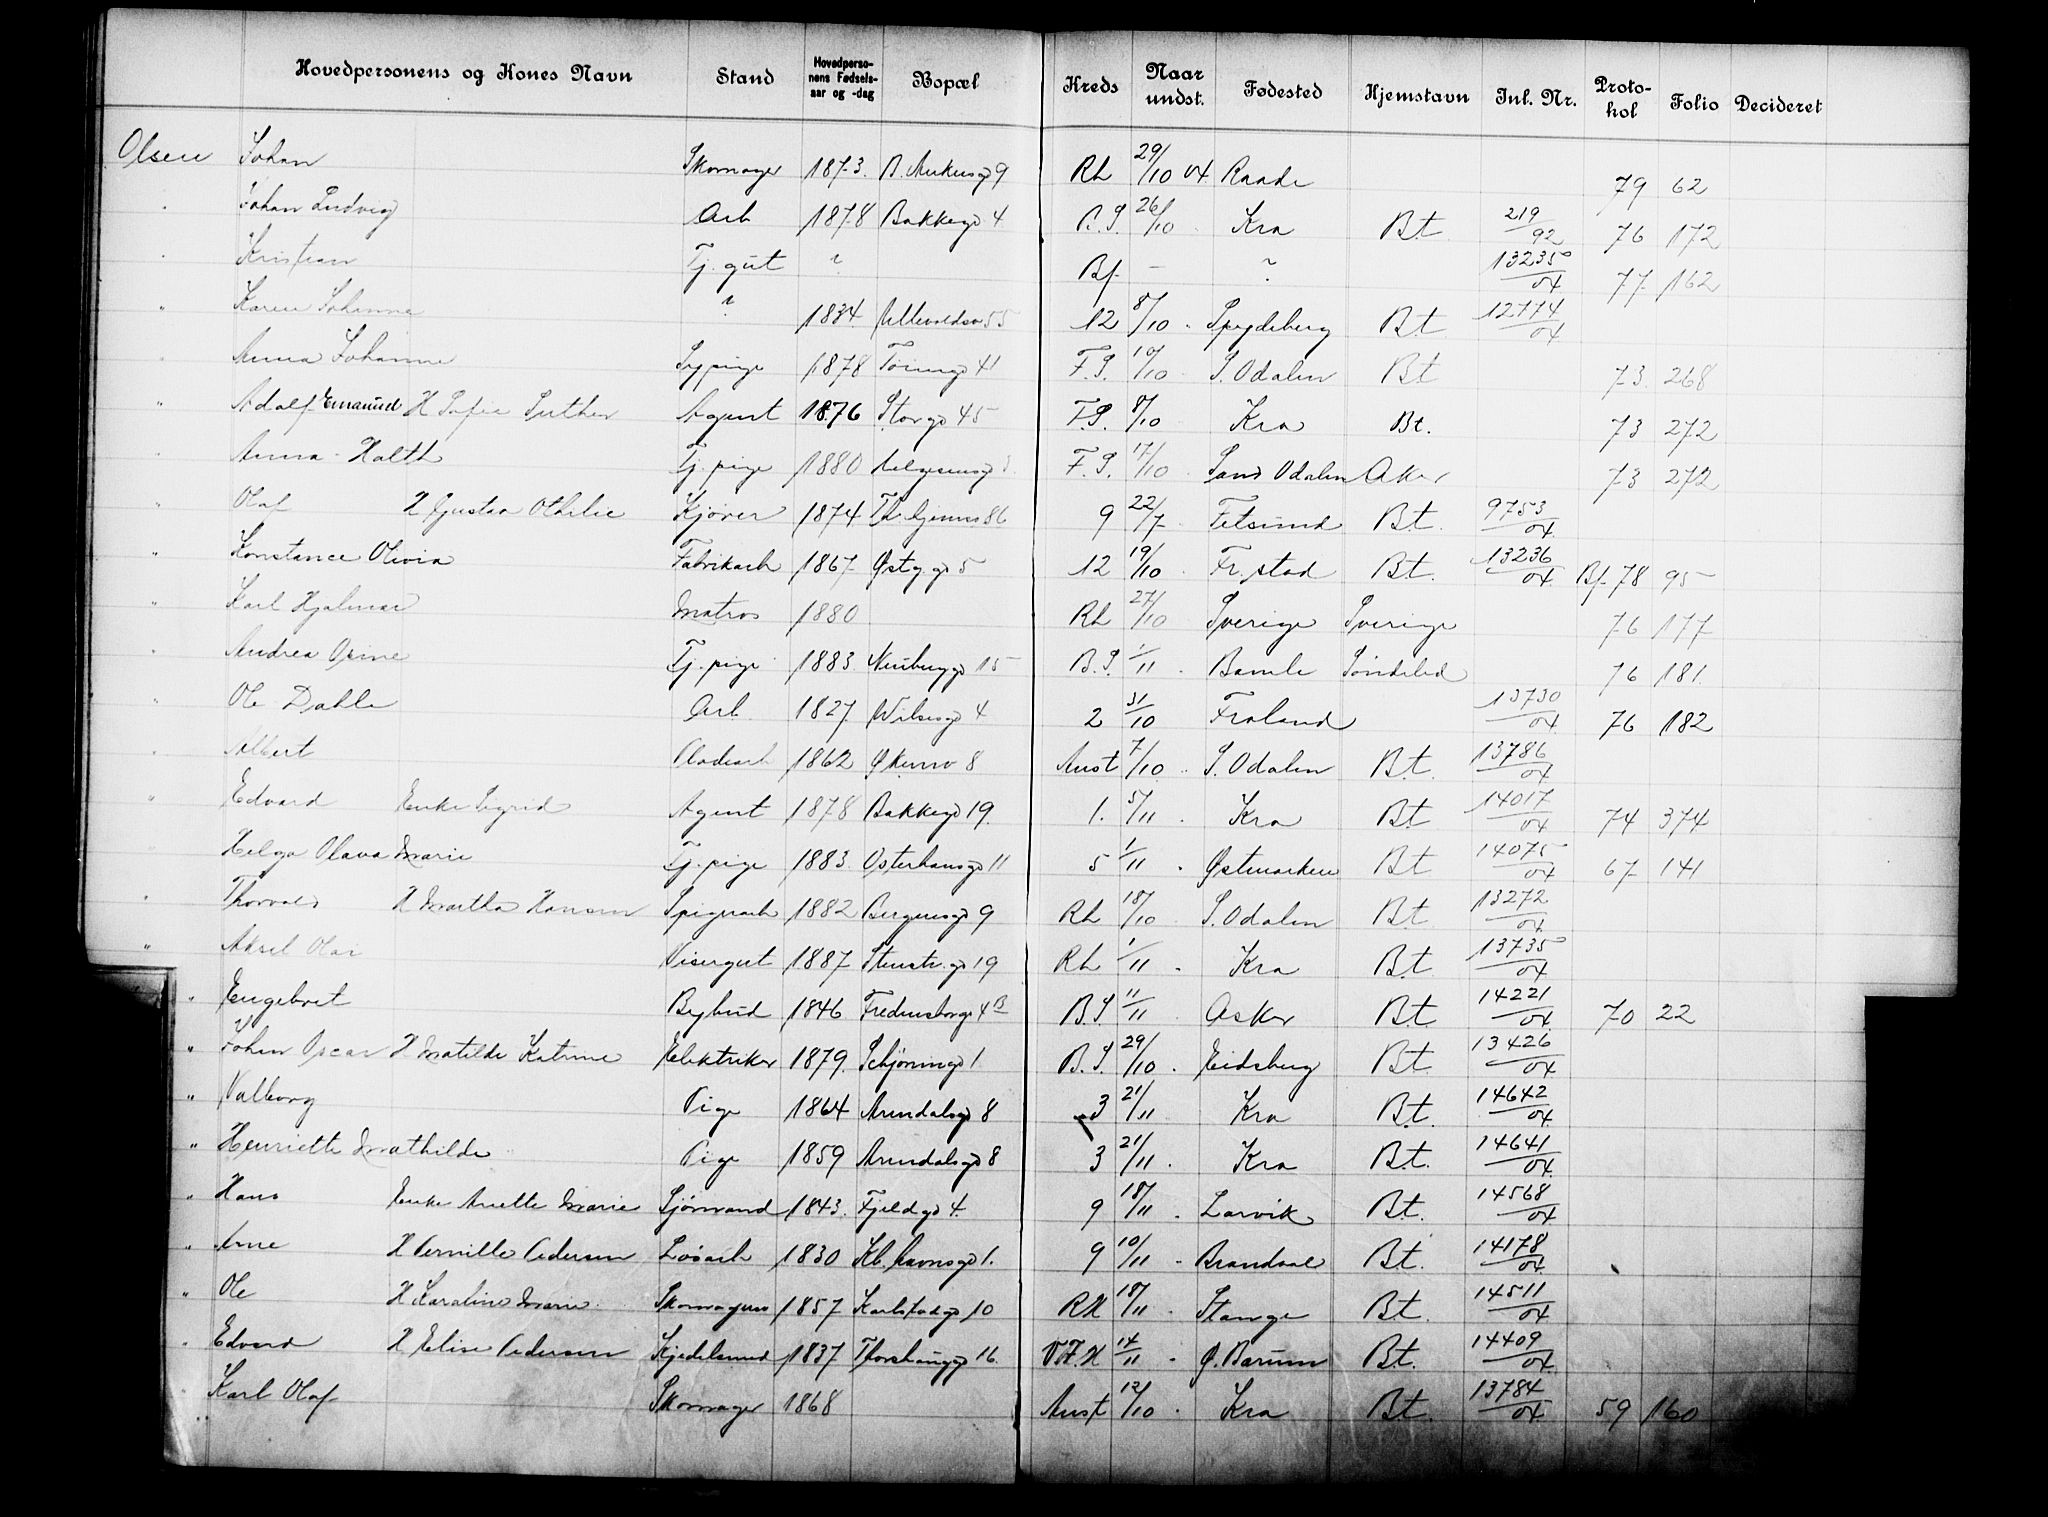 Hovedpersonens og Kones Navn Stand Hovedperso-nens Fødsels-aar og -dag Bopæl Kreds Naar undst. Fødested Hjemstavn Inl. Nr. Proto-kol Folio Decideret
Olsen Johan Skomager 1873. B. Ankersgd 9 Rh 29/10 04 Raade 79 62
" Johan Ludvig Arb 1878 Bakkegd 4 B.S. 26/10 Kra Bt. 219/92 76 172
" Kristian Tj. gut ? Bf. — ? 13235/04 77 162
" Karen Johanne ? 1834 Ullevoldsv 55 12 8/10 " Spydeberg Bt 12774/04
" Anna Johanne Sypige 1878 Tøiengd 41 F.S. 10/10 S. Odalen Bt 73. 268
" Adolf Emanuel H Sofie Suther Agent 1876 Storgd 45 F.S. 8/10 Kra Bt. 73 272
" Anna Holth Tj. pige 1880 F.S. 17/10 Sand Odalen Aker 73 272
" Olaf H Gustava Othilie Kjører 1874 86 9 22/7 Fetsund Bt. 9753/04
" Konstance Olivia Fabrikarb 1867 Østg. gd 5 12 19/10 Fr.stad Bt. 13236/04 Bf. 78 95
" Karl Hjalmar Matros 1880 Rh 27/10 Sverige Sverige 76 177
" Andrea Tj. pige 1883 Neubergd 15 B.S. 1/11 Bamle Søndeled 76 181
" Ole Dahle Arb. 1827 Wilsesgd 4 2 31/10 Froland 13730/04 76 182
" Albert 1862 Økernv 8 Anst 7/10 " S. Odalen Bt. 13786/04
" Edvard Enke Sigrid Agent 1878 Bakkegd 19. 1. 5/11 Kra Bt 14017/04 74 374
" Helga Olava Marie Tj. pige 1883. Osterhausgd 11 5 1/11 " Østmarken Bt 14075/04 67 141
" Thorvald H Martha Hansen Spigerarb 1882 Bergensgd 9 Rh 18/10 S. Odalen Bt 13272/04
" Aksel Olav Visergut 1887 Stenstr. gd 19 Rh 1/11 " Kra Bt. 13735/04
" Engebret Bybud 1846 Fredensborgv 4B B.S. 11/11 Asker Bt 14221/04 70 22
" Johan Oscar H Matilde Katrine Elektriker 1879. Schjøningd 1. B.S. 29/10 " Eidsberg Bt. 13426/04
" Valborg Pige 1864 Arendalsgd 8 3 21/11 " Kra Bt. 14642/04
" Henriette Mathilde Pige 1859 Arendalsgd 8 3 21/11 " Kra Bt. 14641/04
" Hans Enke Anette Marie Sjømand 1843. Fjeldgd 4. 9 18/11 " Larvik Bt. 14568/04
" Arne H Pernille Pedersen Løsarb 1830 Kb.havnsgd 1. 9 10/11 " Brandval Bt. 14178/04
" Ole H Karoline Marie 1857 Karlstadgd 10 RH 18/11 " Stange Bt. 14511/04
" Edvard H Elise Pedersen Kjedelsmed 1837 Thorshauggd 16. V.F.H 14/11 " Ø. Bærum Bt. 14409/04
" Karl Olaf Skomager 1868 Anst 12/10 " Kra Bt. 13784/04 59 160